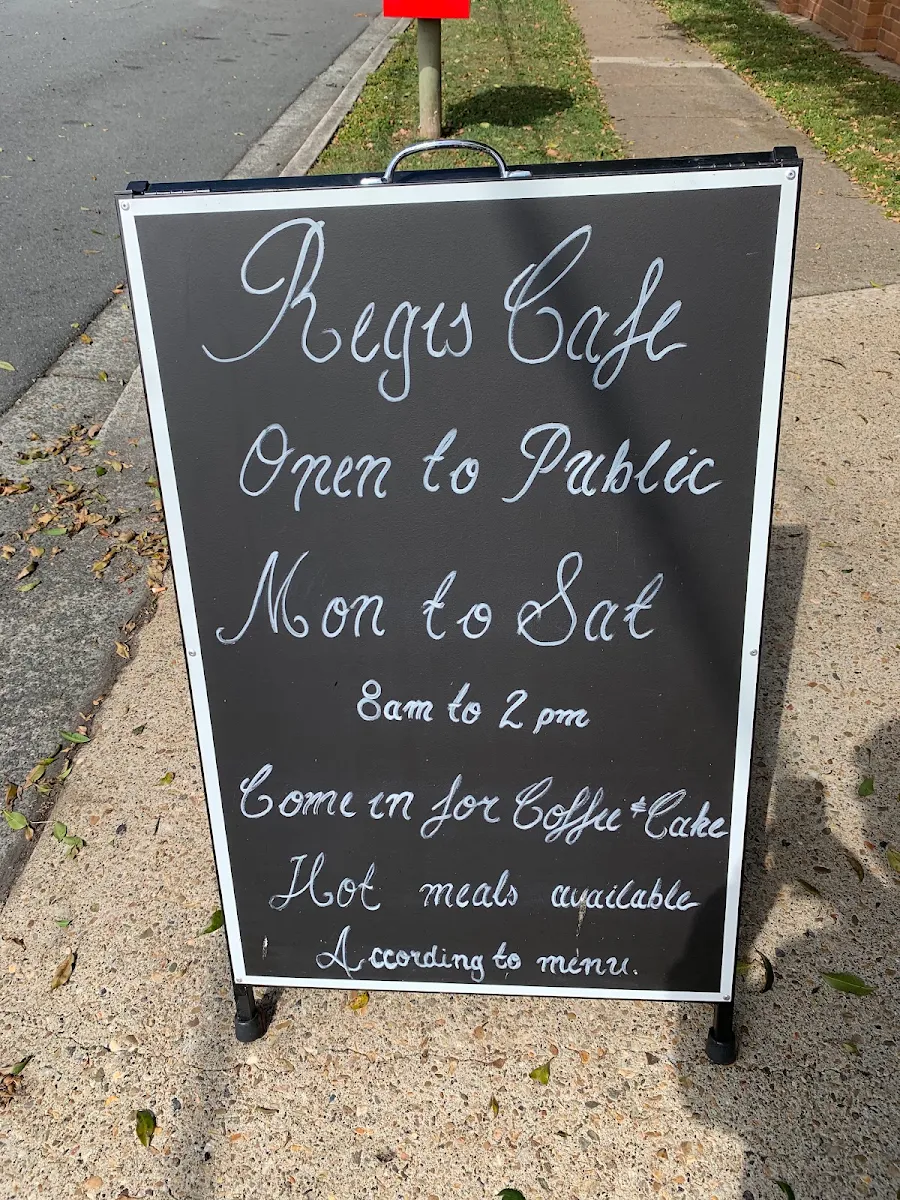 Regis Cafe
Open to Public
Mon to Sat
8am to 2 pm
Come in for Coffee & Cake
Hot meals available
According to menu.